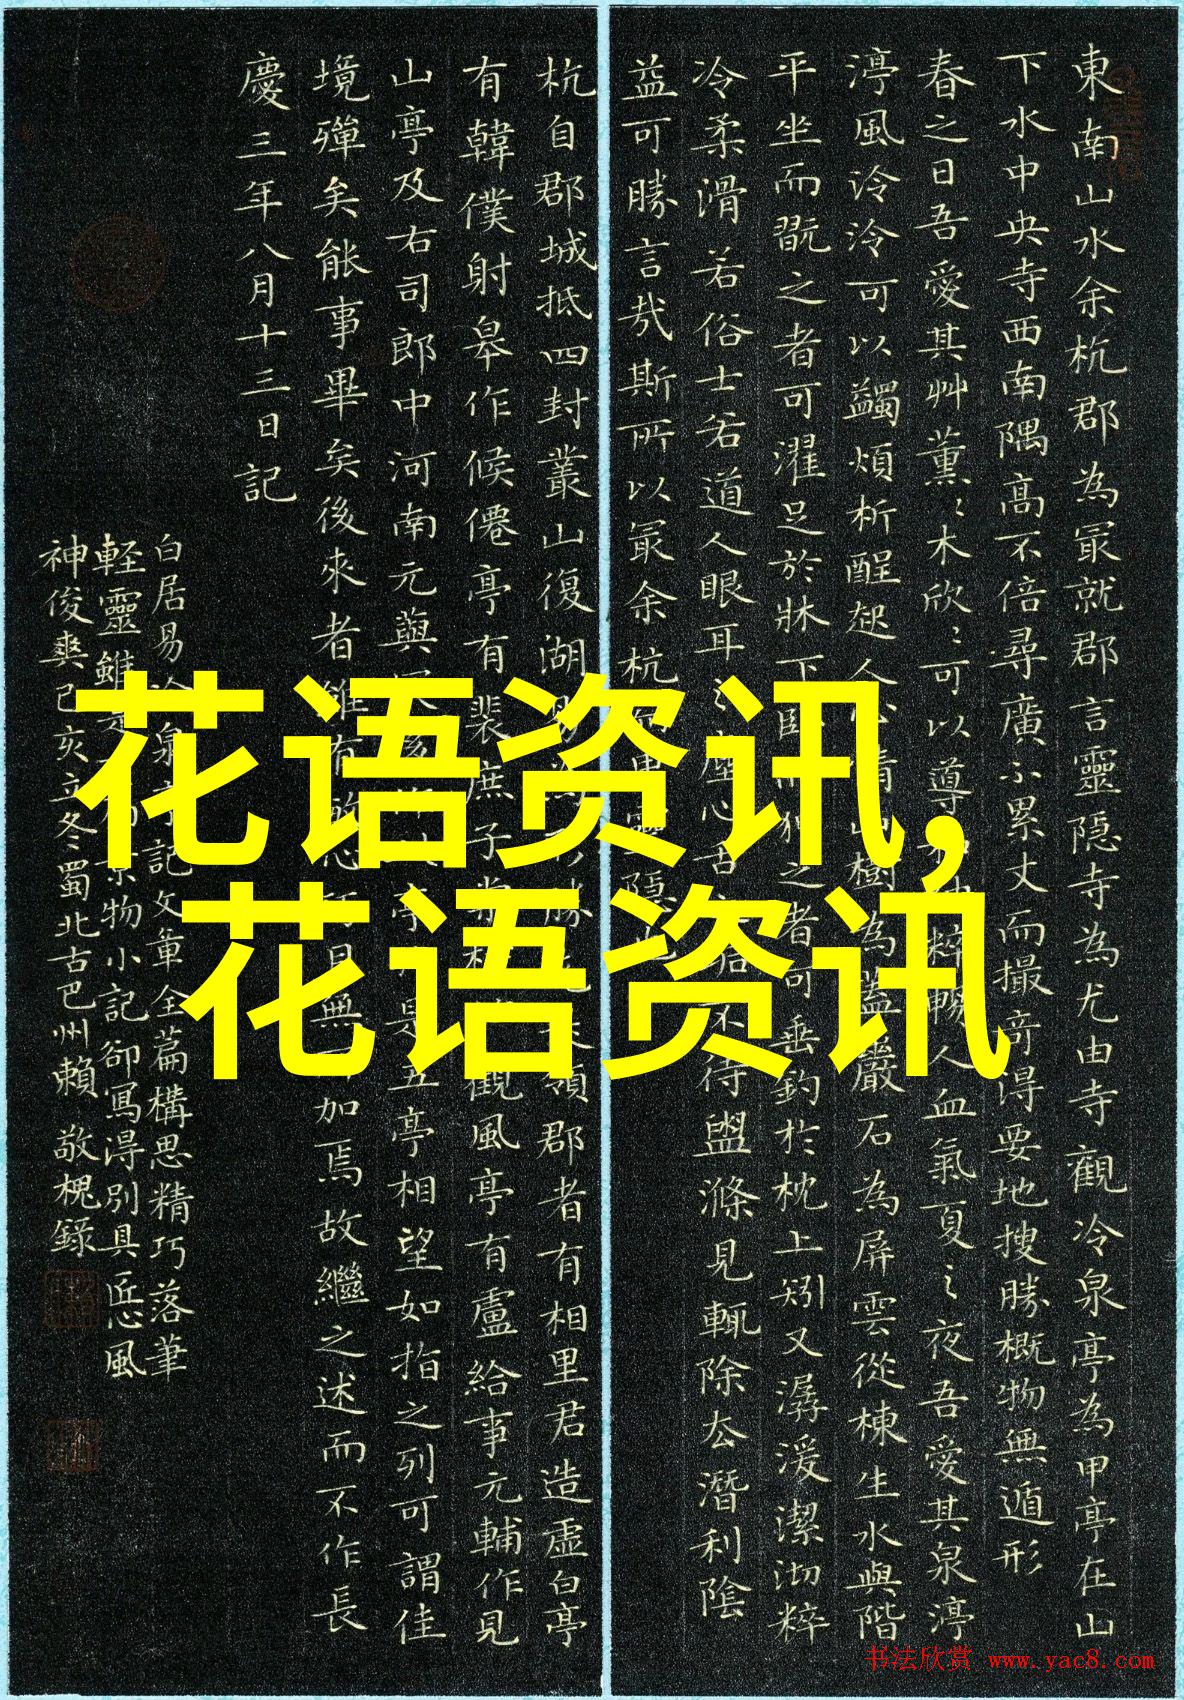 東南山水余杭郡為最就郡言靈隱寺為尤由寺觀冷泉亭為甲亭在山
下水中央寺西南隅高不倍尋廣不累丈而撮奇得要地搜勝概物無遁形
春之日吾愛其艸薰〻木欣〻可以導和納粹暢人血氣夏之夜吾愛其泉渟
渟風泠泠可以蠲煩析酲起人心情山樹為蓋巖石為屏雲從棟生水與階
平坐而翫之者可濯足於牀下臥而狎之者可垂釣於枕上矧又潺湲潔沏粹
冷柔滑若俗士若道人眼耳之塵心舌之垢不待盥滌見輒除去潛利陰
益可勝言哉斯所以最余杭而甲靈隱也
杭自郡城抵四封叢山復湖易為形勝先是領郡者有相里君造虛白亭
有韓僕射皋作候僊亭有裴庶子棠棣作觀風亭有盧給事元輔作見
山亭及右司郎中河南元藇最後作此亭於是五亭相望如指之列可謂佳
境殫矣能事畢矣後來者雖有敏心巧目無所加焉故繼之述而不作長
慶三年八月十三日記
白居易冷泉亭記文章全篇構思精巧落筆
軽靈雖是為景物小記卻寫得別具匠心風
神俊爽己亥立冬蜀北古巴州賴敬槐錄
花语资讯,
花语资讯
书法欣赏 www.yac8.com